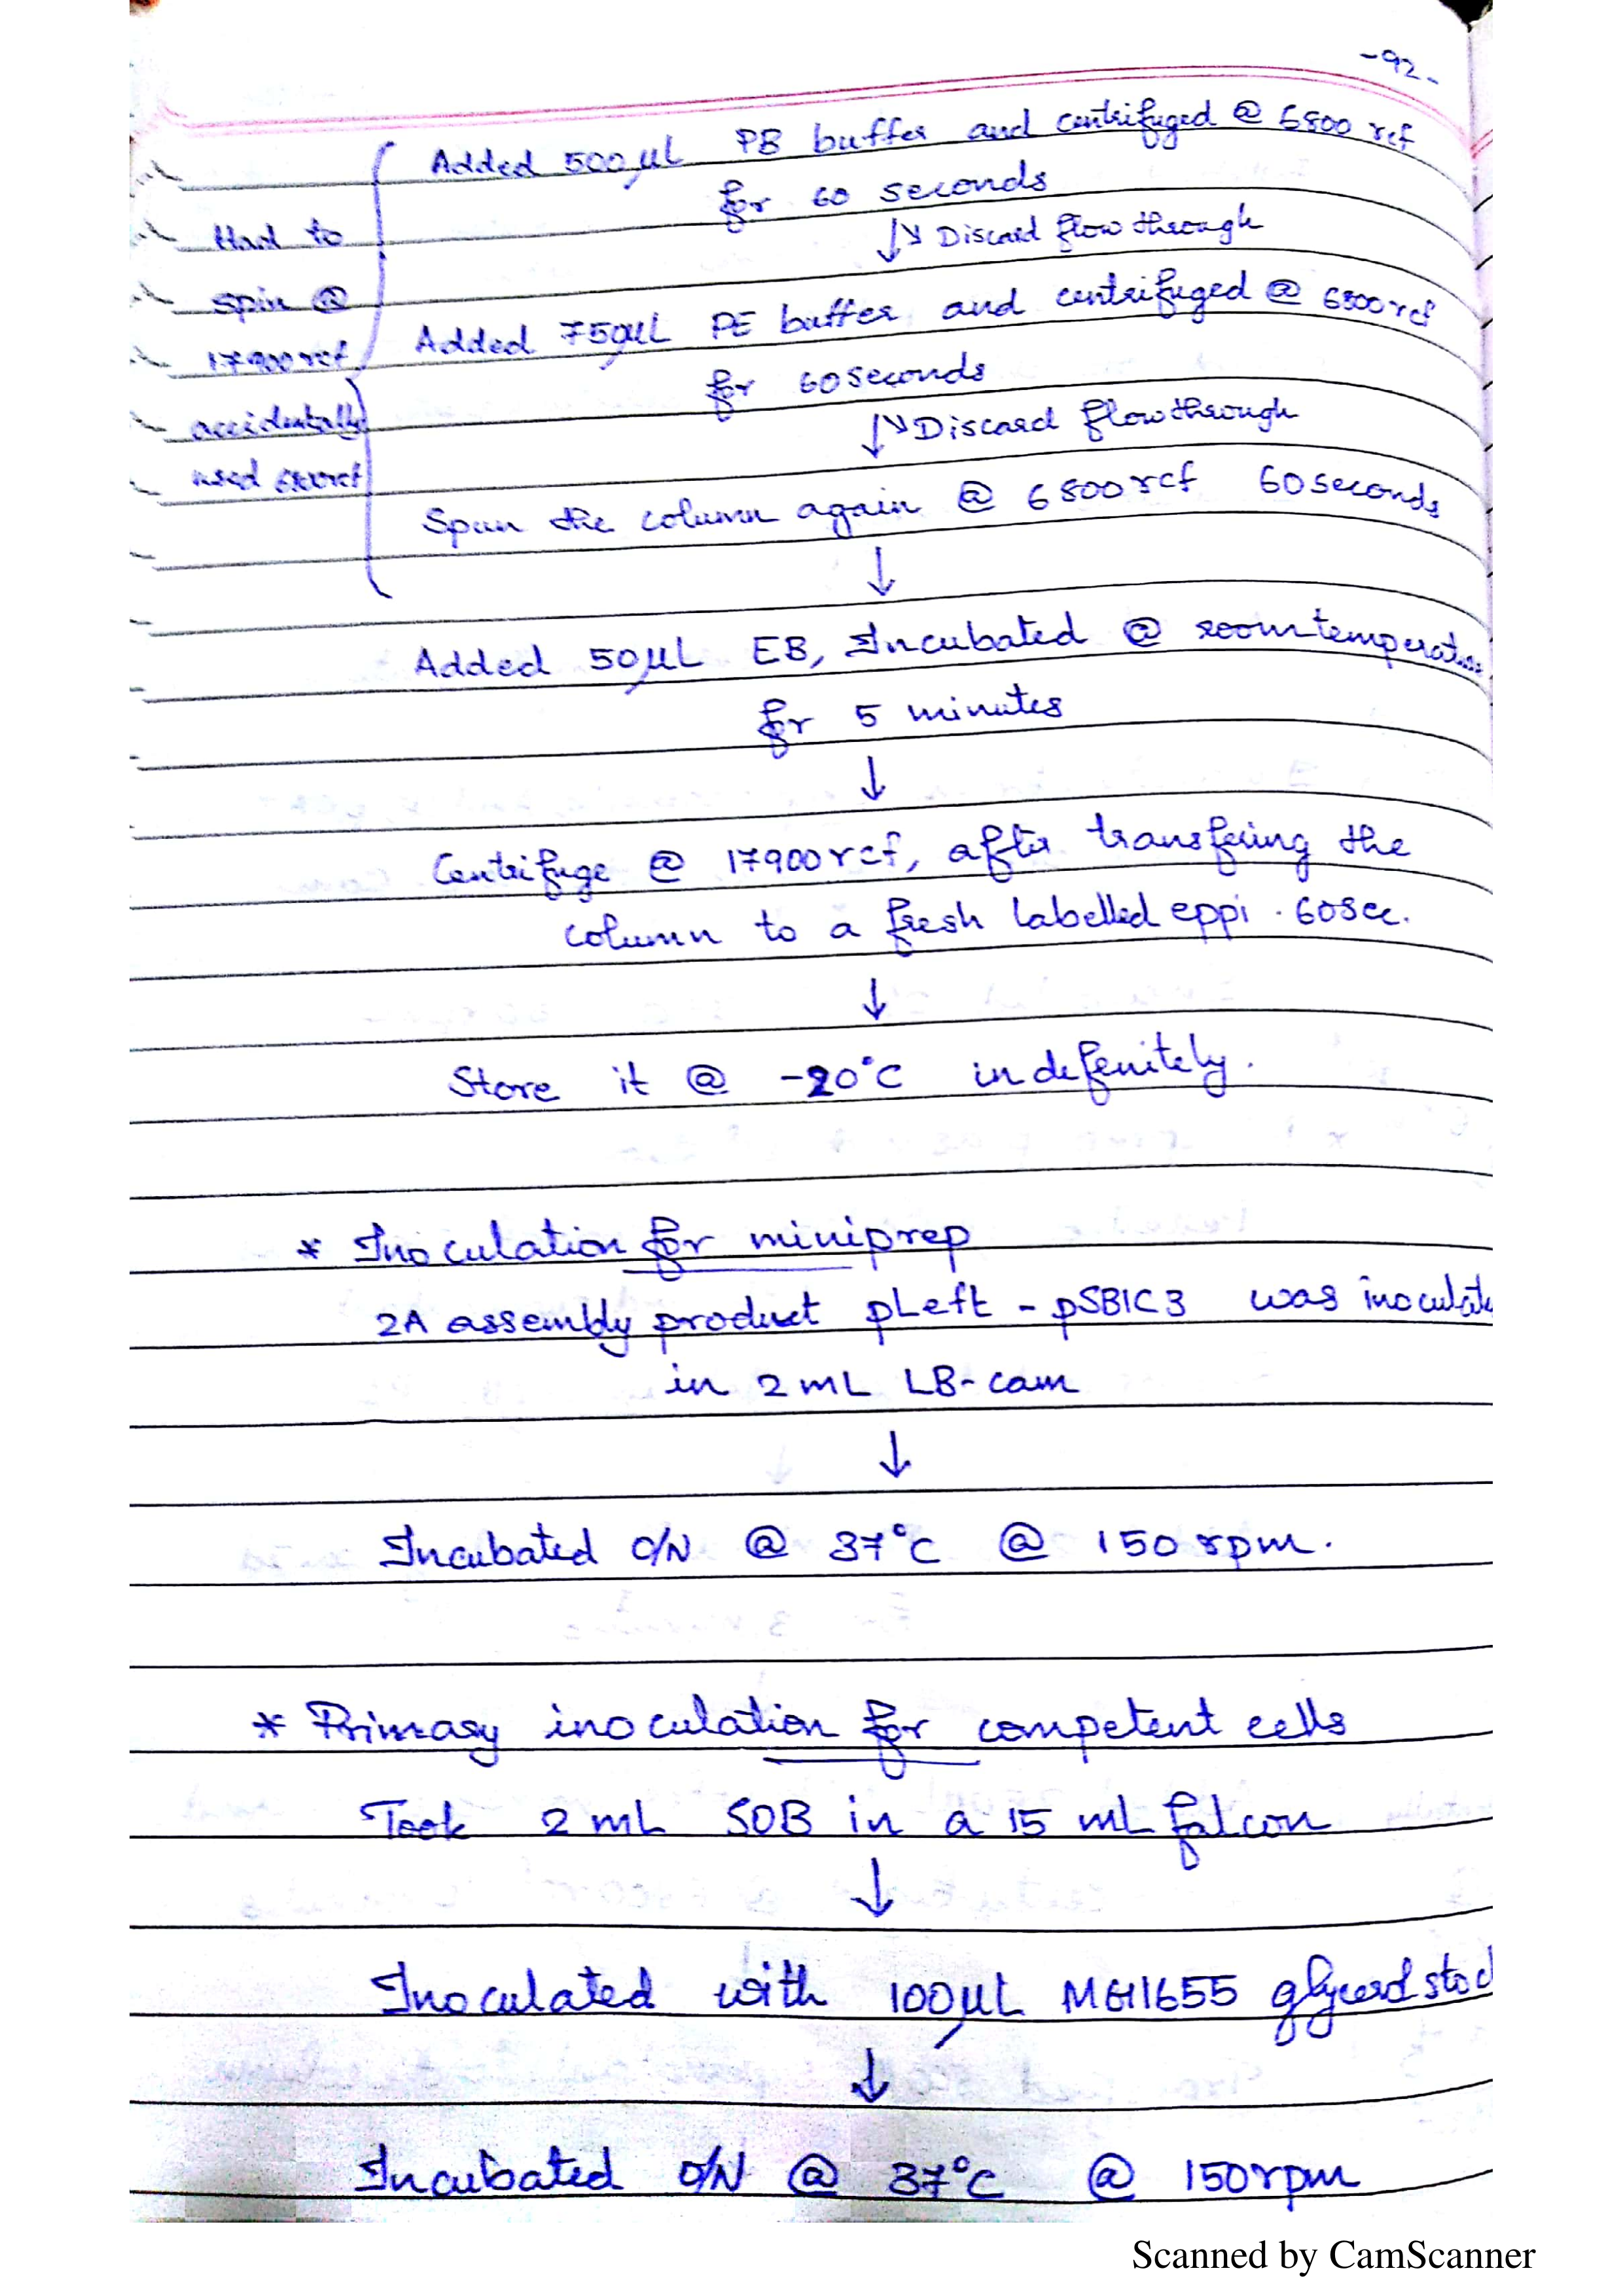 -92-
Added 500µL PB buffer and centrifuged @ 6800 rcf
for 60 seconds
↓↘ Discard flow through
Added 750µL PE buffer and centrifuged @ 6800rcf
for 60seconds
↓↘ Discard flowthrough
Spun the column again @ 6800rcf 60seconds
Had to
spin @
17900rcf
accidentally
used 6800rcf
↓
Added 50µL EB, Incubated @ room
for 5 minutes
↓
Centrifuge @ 17900rcf, after transfering the
column to a fresh labelled eppi . 60sec.
↓
Store it @ -20°C indefenitely.
* Inoculation for miniprep
2A assembly product pLeft - pSB1C3 was inoculate
in 2mL LB-cam
↓
Incubated O/N @ 37°C @ 150rpm.
* Primary inoculation for competent cells
Took 2mL SOB in a 15 mL falcon
↓
Inoculated with 100µL MG1655 glycerol stoc
↓
Incubated O/N @ 37°C @ 150rpm
Scanned by CamScanner